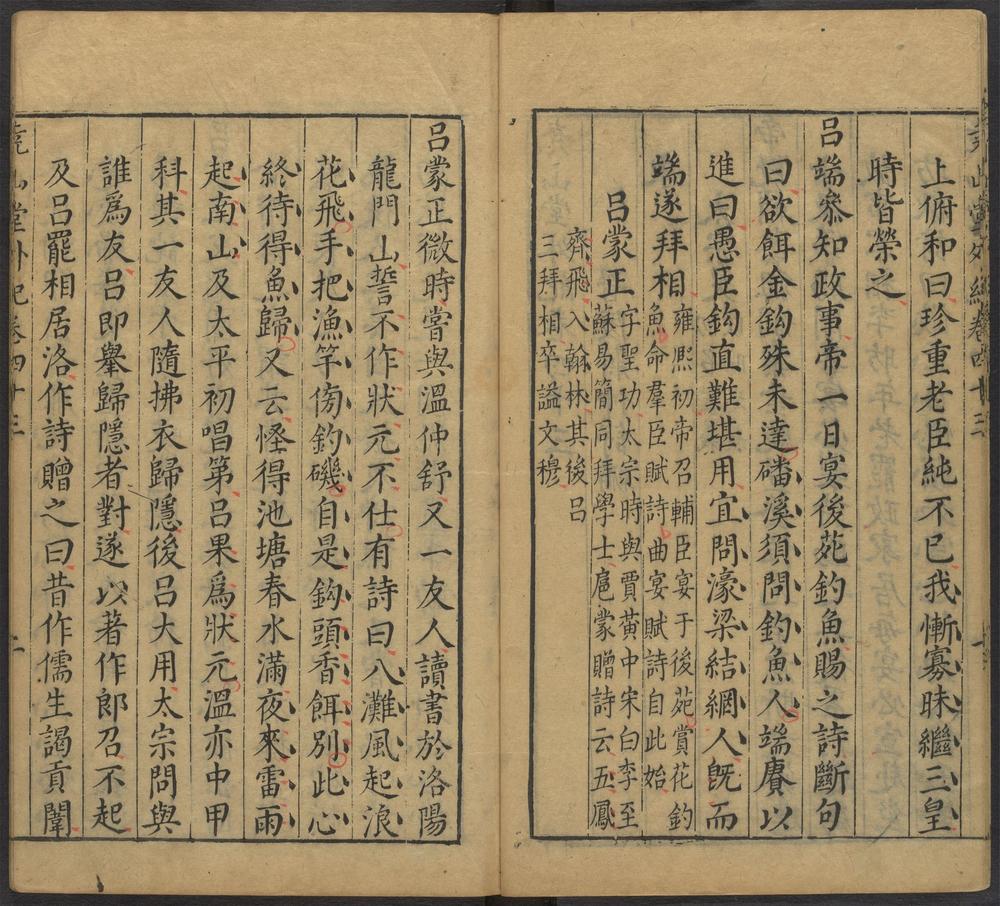 上俯和曰珍重老臣純不已我慚寡昧繼三皇
時皆榮之
呂端參知政事帝一日宴後苑釣魚賜之詩斷句
曰欲餌金鈎殊未達磻溪須問釣魚人端賡以
進曰愚臣鈎直難堪用宜問濠梁結網人旣而
端遂拜相雍熙初帝召輔臣宴于後苑賞花釣
魚命羣臣賦詩曲宴賦詩自此始
呂蒙正字聖功太宗時與賈黃中宋白李至
蘇易簡同拜學士扈蒙贈詩云五鳳
齊飛入翰林其後呂
三拜相卒謚文穆
呂蒙正微時嘗與溫仲舒又一友人讀書於洛陽
龍門山誓不作狀元不仕有詩曰八灘風起浪
花飛手把漁竿傍釣磯自是鈎頭香餌別此心
終待得魚歸又云怪得池塘春水滿夜來雷雨
起南山及太平初唱第呂果爲狀元溫亦中甲
科其一友人隨拂衣歸隱後呂大用太宗問與
誰爲友呂即舉歸隱者對遂以著作郎召不起
及呂罷相居洛作詩贈之曰昔作儒生謁貢闈
堯山堂外紀卷四十三